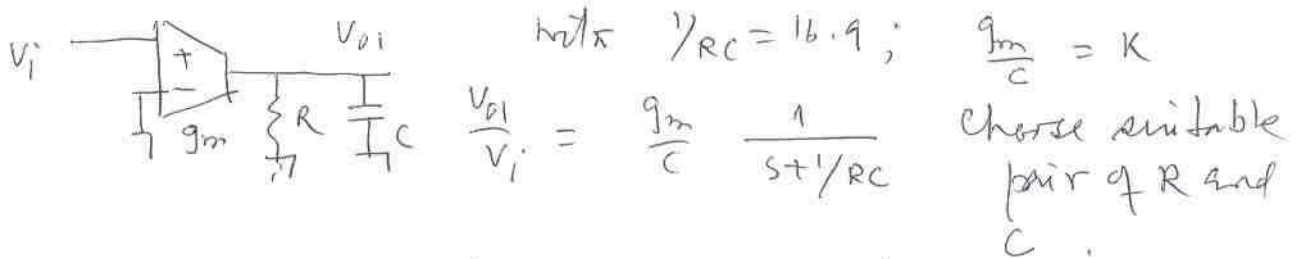 Vi + − gm R C Vo1
with 1/RC = 16.9 ; gm/C = K
Vo1/Vi = gm/C 1/(s+1/RC)
Choose suitable
pair of R and
C .